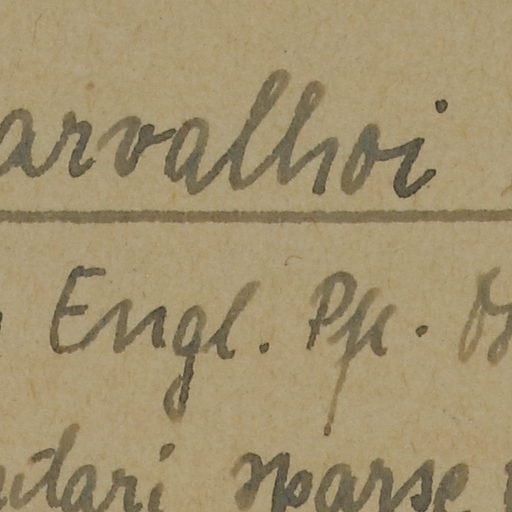 arvalhoi
Engl. Pfl. O
sparse